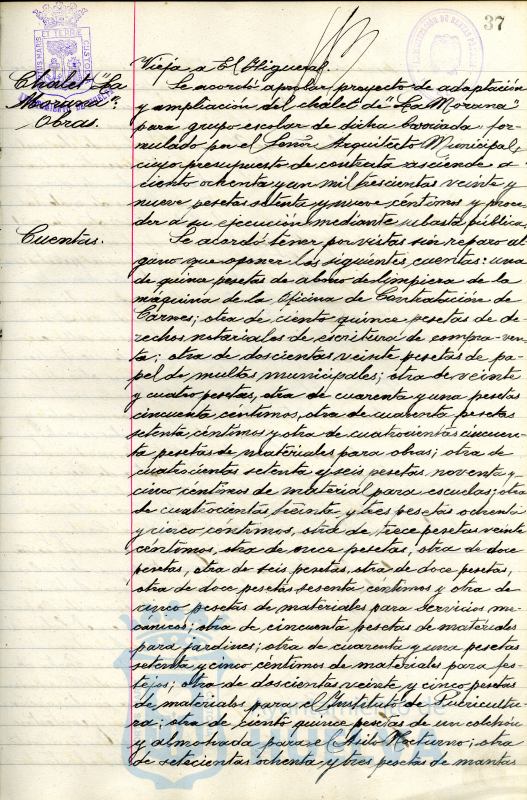 37
Vieja a El Higueral.
Chalet "La
Morana".
Obras.
Se acordó aprobar proyecto de adaptación
y ampliación del chalet de "La Morana"
para grupo escolar de dicha barriada, for-
mulado por el Señor Arquitecto Municipal,
cuyo presupuesto de contrata asciende a
ciento ochenta y un mil trescientas veinte y
nueve pesetas setenta y nueve céntimos y proce-
der a su ejecución mediante subasta pública.
Cuentas.
Se acordó tener por vistas sin reparo al-
guno que oponer las siguientes cuentas: una
de quince pesetas de abono de limpieza de la
máquina de la Oficina de Contratación de
Carnes; otra de ciento quince pesetas de de-
rechos notariales de escritura de compra-ven-
ta; otra de doscientas veinte pesetas de pa-
pel de multas municipales; otra de veinte
y cuatro pesetas, otra de cuarenta y una pesetas
cincuenta céntimos, otra de cuatro pesetas
setenta céntimos y otra de cuatrocientas cincuen-
ta pesetas de materiales para obras; otra de
cuatrocientas setenta y seis pesetas noventa y
cinco céntimos de material para escuelas; otra
de cuatrocientas treinta y tres pesetas ochenta
y cinco céntimos, otra de trece pesetas veinte
céntimos, otra de once pesetas, otra de doce
pesetas, otra de seis pesetas, otra de doce pesetas,
otra de doce pesetas sesenta céntimos y otra de
cinco pesetas de materiales para servicios me-
cánicos; otra de cincuenta pesetas de materiales
para jardines; otra de cuarenta y una pesetas
setenta y cinco céntimos de materiales para fes-
tejos; otra de doscientas veinte y cinco pesetas
de materiales para el Instituto de Puericultu-
ra; otra de ciento quince pesetas de un colchón
y almohada para el Asilo Nocturno; otra
de setecientas ochenta y tres pesetas de mantas